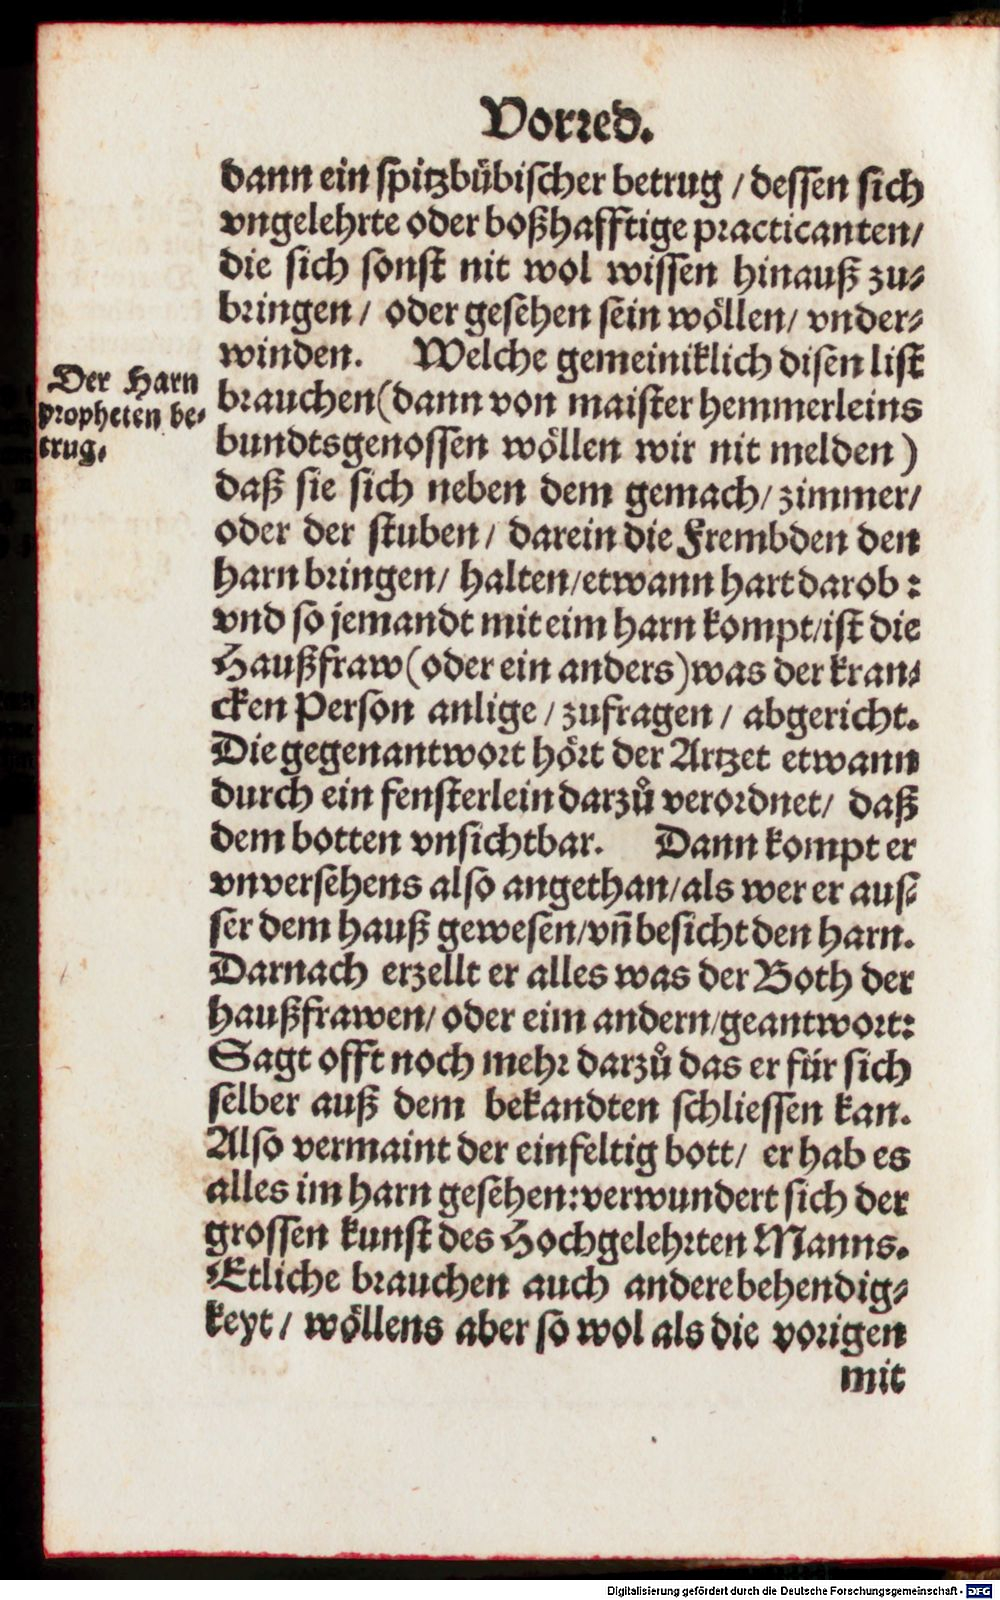 Vorred.
dann ein spitzbübischer betrug / dessen sich
vngelehrte oder boßhafftige practicanten/
die sich sonst nit wol wissen hinauß zu-
bringen / oder gesehen sein wöllen / vnder-
winden. Welche gemeiniklich disen list
Der Harn
propheten be-
trug.
brauchen (dann von maister hemmerleins
bundtsgenossen wöllen wir nit melden)
daß sie sich neben dem gemach / zimmer/
oder der stuben / darein die Frembden den
harn bringen / halten / etwann hart darob:
vnd so jemandt mit eim harn kompt / ist die
Haußfraw (oder ein anders) was der kran-
cken Person anlige / zufragen / abgericht.
Die gegenantwort hört der Artzet etwann
durch ein fensterlein darzů verordnet / daß
dem botten vnsichtbar. Dann kompt er
vnversehens also angethan / als wer er aus-
ser dem hauß gewesen / vñ besicht den harn.
Darnach erzellt er alles was der Both der
haußfrawen / oder eim andern / geantwort:
Sagt offt noch mehr darzů das er für sich
selber auß dem bekandten schliessen kan.
Also vermaint der einfeltig bott / er hab es
alles im harn gesehen: verwundert sich der
grossen kunst des Hochgelehrten Manns.
Etliche brauchen auch andere behendig-
keyt / wöllens aber so wol als die vorigen
mit
Digitalisierung gefördert durch die Deutsche Forschungsgemeinschaft - DFG